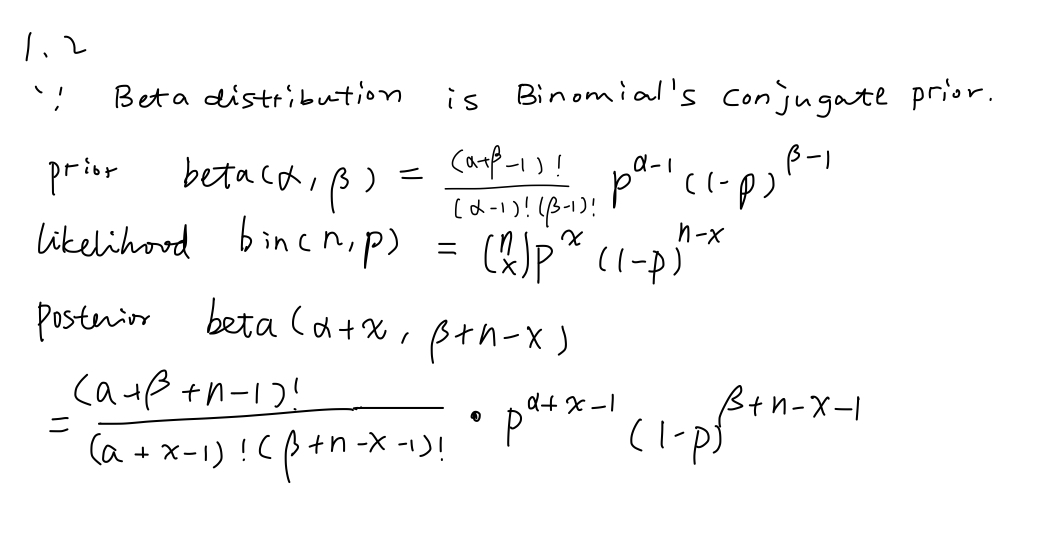 1.2
∵ Beta distribution is Binomial's conjugate prior.
prior beta(α, β) = \frac{(α+β-1)!}{(α-1)!(β-1)!} p^{α-1} (1-p)^{β-1}
likelihood bin(n, p) = \binom{n}{x} p^{x} (1-p)^{n-x}
Posterior beta(α+x, β+n-x)
= \frac{(a+β+n-1)!}{(a+x-1)!(β+n-x-1)!} • p^{α+x-1} (1-p)^{β+n-x-1}